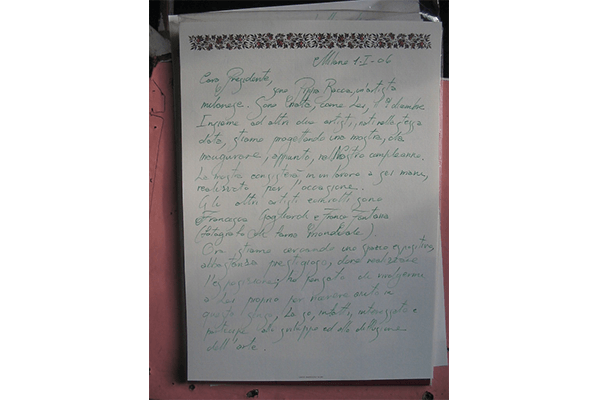 Milano 1-I-06
Caro Presidente,
sono Pippo Rocca, un artista
milanese. Sono nato, come Lei, il 9 dicembre
Insieme ad altri due artisti, nati nella stessa
data, stiamo progettando una mostra, da
inaugurare, appunto, nel nostro compleanno.
La mostra consisterà in un lavoro a sei mani,
realizzato per l'occasione.
Gli altri artisti coinvolti sono
Francesca Gagliardi e Franco Fontana
(fotografo di fama mondiale).
Ora stiamo cercando uno spazio espositivo
abbastanza prestigioso, dove realizzare
l'esposizione; ho pensato di rivolgermi
a Lei proprio per ricevere aiuto in
questo senso. La so, infatti, interessato e
partecipe allo sviluppo ed alla diffusione
dell'arte.